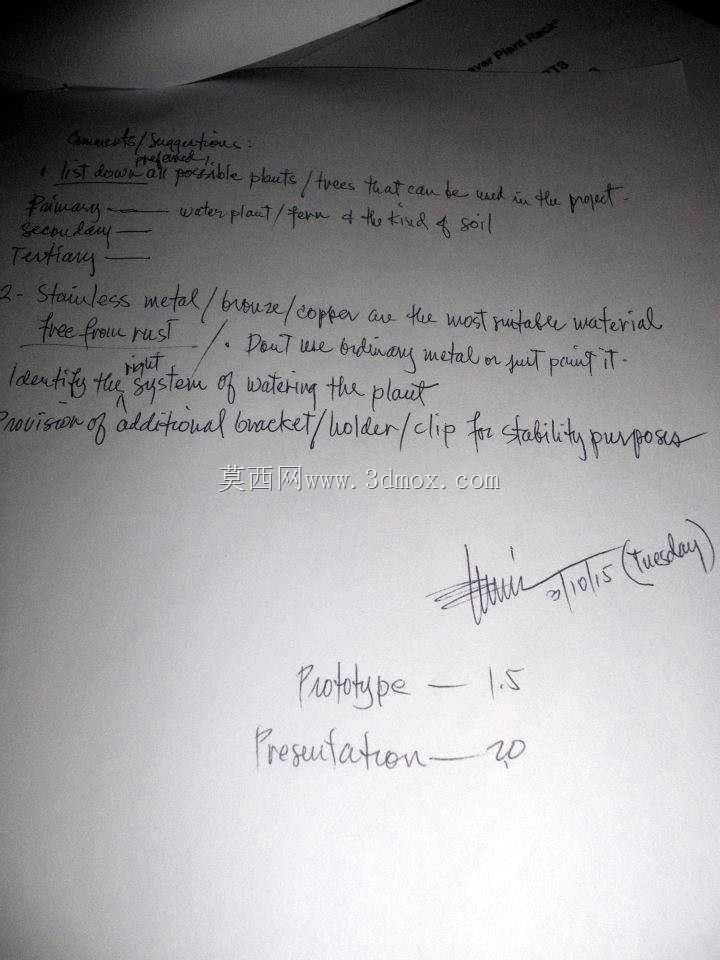 ver Plant Rack"
Comments/Suggestions:
preferred
• list down all possible plants/trees that can be used in the project.
Primary — water plant/fern & the kind of soil
Secondary —
Tertiary —
2- Stainless metal/bronze/copper are the most suitable material
free from rust /. Don't use ordinary metal or just paint it.
right
Identify the system of watering the plant
Provision of additional bracket/holder/clip for stability purposes
莫西网www.3dmox.com
/10/15 (Tuesday)
Prototype — 1.5
Presentation — 2.0